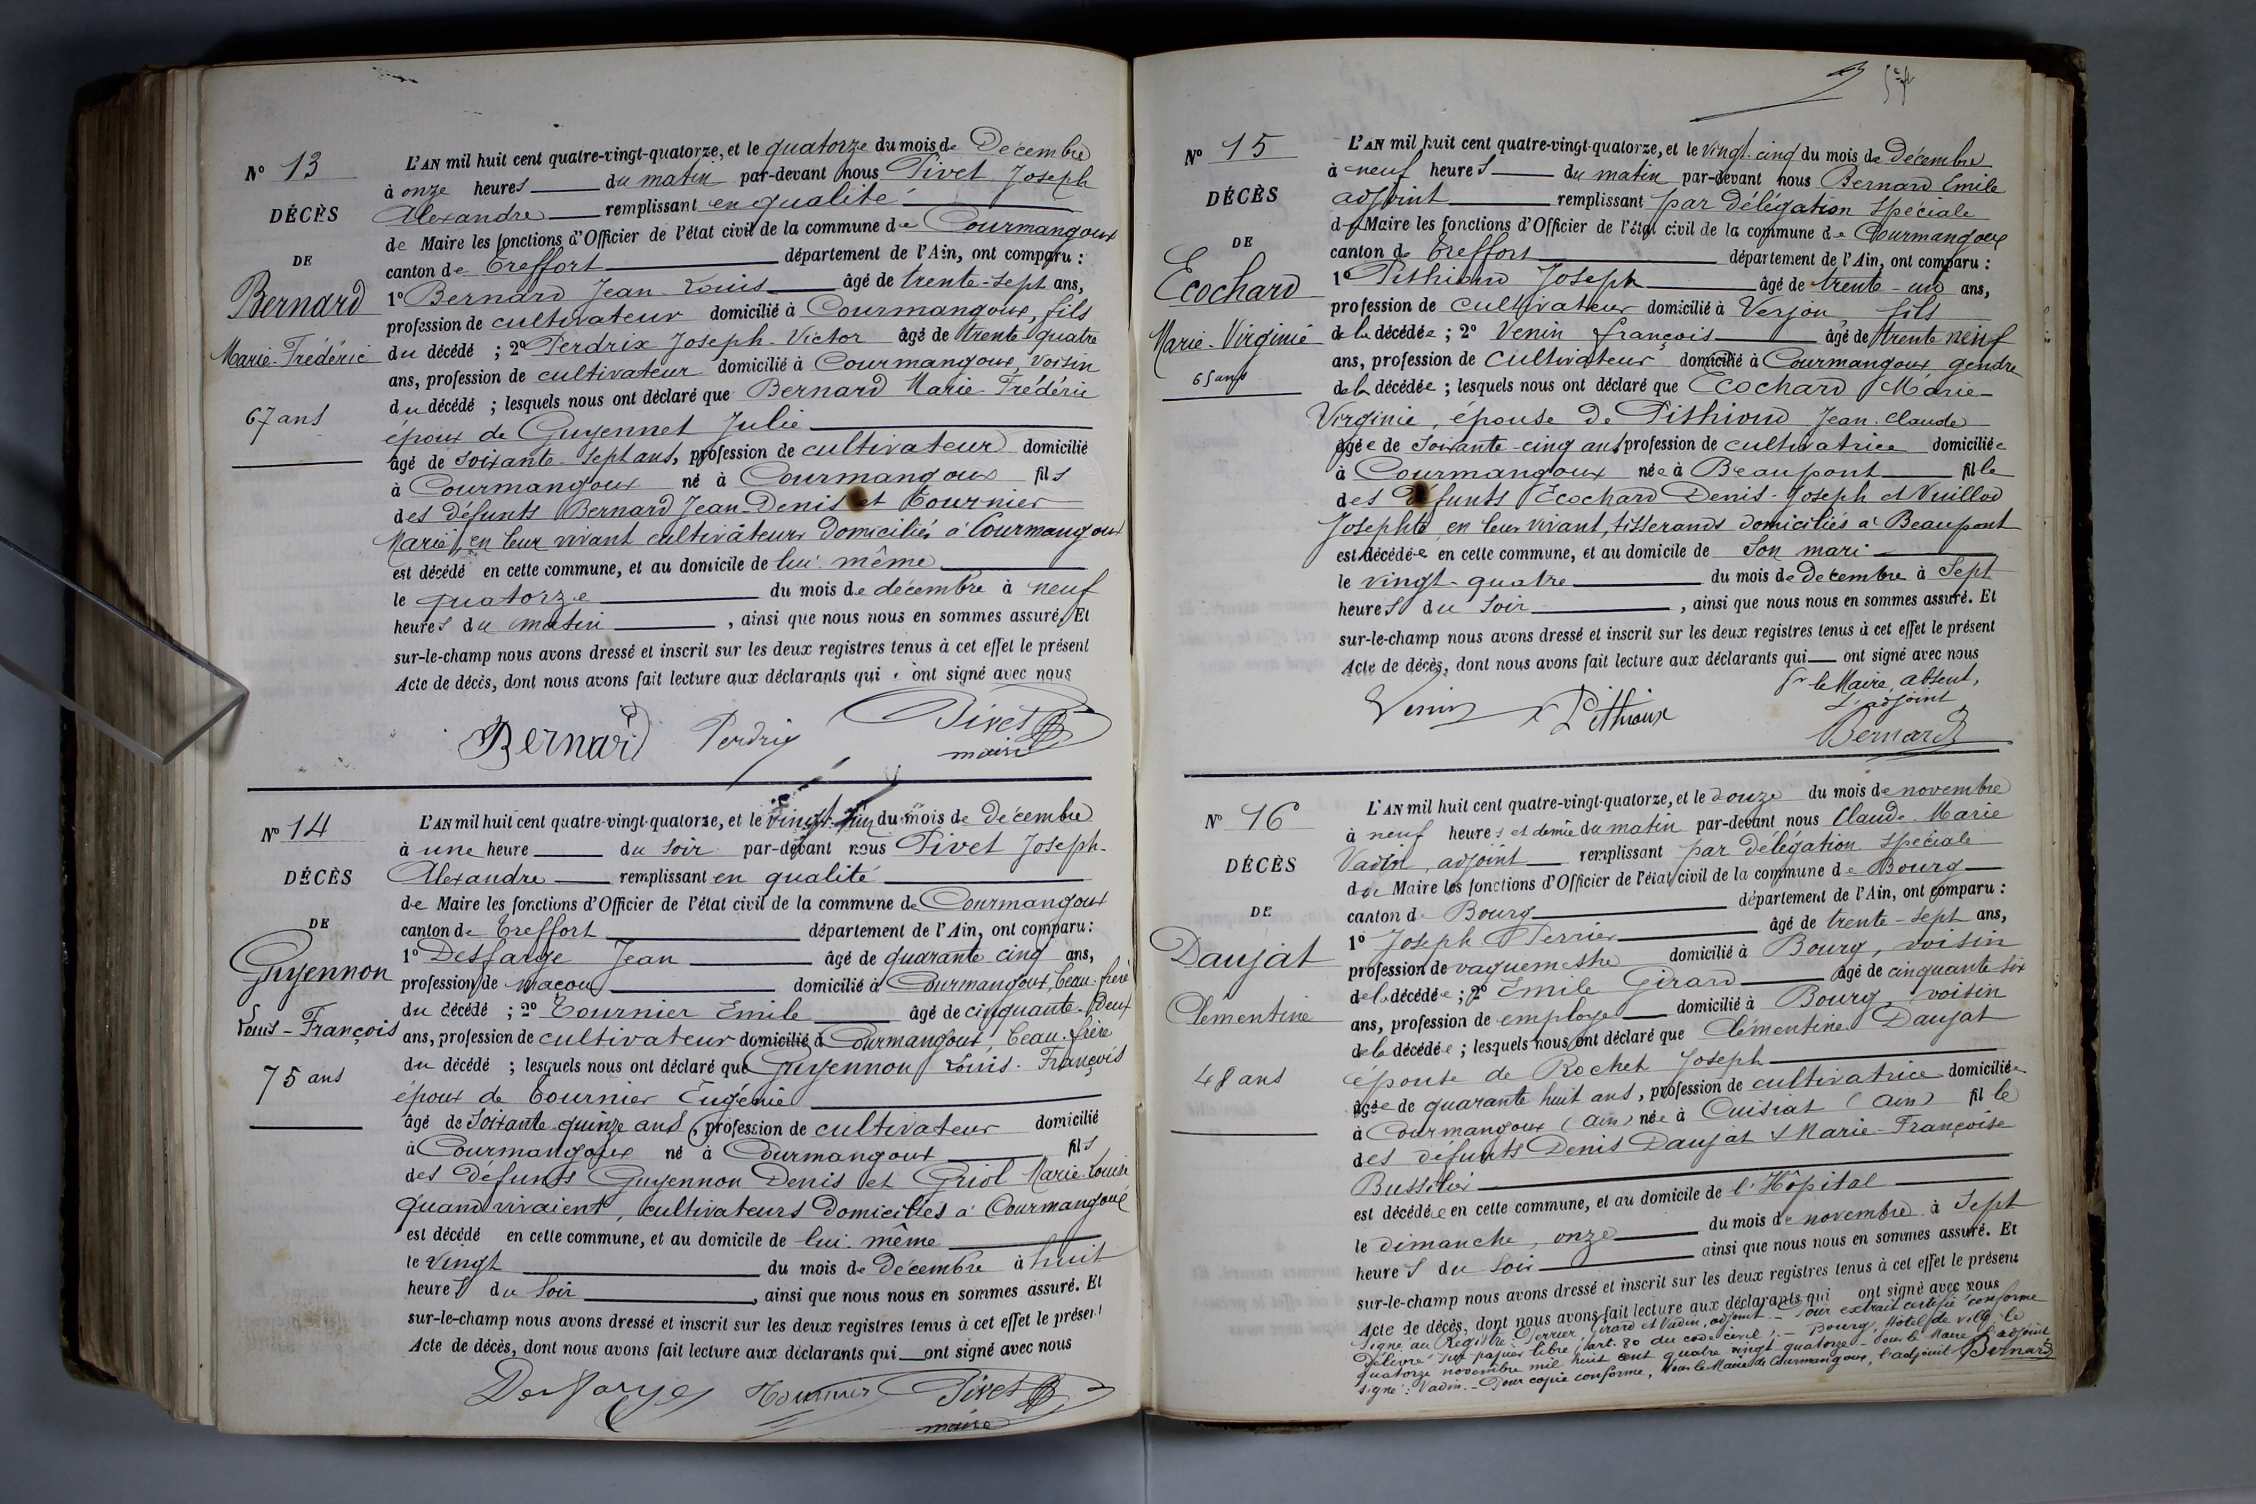 N° 13
DÉCÈS
DE
Bernard
Marie-Frédéric
67 ans
L'AN mil huit cent quatre-vingt-quatorze, et le quatorze du mois de Décembre
à onze heures du matin par-devant nous Pivet Joseph
Alexandre remplissant en qualité
de Maire les fonctions d'Officier de l'état civil de la commune de Courmangoux
canton de Treffort département de l'Ain, ont comparu :
1° Bernard Jean-Louis âgé de trente-sept ans,
profession de cultivateur domicilié à Courmangoux, fils
du décédé ; 2° Perdrix Joseph-Victor âgé de trente quatre
ans, profession de cultivateur domicilié à Courmangoux, voisin
du décédé ; lesquels nous ont déclaré que Bernard Marie-Frédéric
époux de Guyennet Julie
âgé de soixante-sept ans, profession de cultivateur domicilié
à Courmangoux né à Courmangoux fils
des défunts Bernard Jean-Denis et Tournier
Marie, en leur vivant cultivateurs domiciliés à Courmangoux
est décédé en cette commune, et au domicile de lui-même
le quatorze du mois de décembre à neuf
heures du matin, ainsi que nous nous en sommes assuré. Et
sur-le-champ nous avons dressé et inscrit sur les deux registres tenus à cet effet le présent
Acte de décès, dont nous avons fait lecture aux déclarants qui ont signé avec nous
Bernard Perdrix Pivet
maire
N° 14
DÉCÈS
DE
Guyennon
Louis-François
75 ans
L'AN mil huit cent quatre-vingt-quatorze, et le vingt-un du mois de Décembre
à une heure du soir par-devant nous Pivet Joseph-
Alexandre remplissant en qualité
de Maire les fonctions d'Officier de l'état civil de la commune de Courmangoux
canton de Treffort département de l'Ain, ont comparu :
1° Desfarge Jean âgé de quarante cinq ans,
profession de maçon domicilié à Courmangoux, beau-frère
du décédé ; 2° Tournier Emile âgé de cinquante-deux
ans, profession de cultivateur domicilié à Courmangoux, beau-frère
du décédé ; lesquels nous ont déclaré que Guyennon Louis-François
époux de Tournier Eugénie
âgé de soixante-quinze ans, profession de cultivateur domicilié
à Courmangoux né à Courmangoux fils
des défunts Guyennon Denis et Griol Marie-Louise
quand vivaient, cultivateurs domiciliés à Courmangoux
est décédé en cette commune, et au domicile de lui-même
le vingt du mois de Décembre à huit
heures du soir, ainsi que nous nous en sommes assuré. Et
sur-le-champ nous avons dressé et inscrit sur les deux registres tenus à cet effet le présent
Acte de décès, dont nous avons fait lecture aux déclarants qui ont signé avec nous
Desfarge Tournier Pivet
maire
N° 15
DÉCÈS
DE
Ecochard
Marie-Virginie
65 ans
L'AN mil huit cent quatre-vingt-quatorze, et le vingt-cinq du mois de décembre
à neuf heures du matin par-devant nous Bernard Emile
adjoint remplissant par délégation spéciale
du Maire les fonctions d'Officier de l'état civil de la commune de Courmangoux
canton de Treffort département de l'Ain, ont comparu :
1° Pithioud Joseph âgé de trente-un ans,
profession de cultivateur domicilié à Verjon fils
de la décédée ; 2° Venin françois âgé de trente neuf
ans, profession de cultivateur domicilié à Courmangoux, gendre
de la décédée ; lesquels nous ont déclaré que Ecochard Marie-
Virginie, épouse de Pithioud Jean-Claude
âgée de soixante-cinq ans profession de cultivatrice domiciliée
à Courmangoux née à Beaupont fille
des défunts Ecochard Denis-Joseph et Vuillod
Josephte, en leur vivant, tisserands domiciliés à Beaupont
est décédée en cette commune, et au domicile de son mari
le vingt-quatre du mois de Décembre à sept
heures du soir, ainsi que nous nous en sommes assuré. Et
sur-le-champ nous avons dressé et inscrit sur les deux registres tenus à cet effet le présent
Acte de décès, dont nous avons fait lecture aux déclarants qui ont signé avec nous
Pr le Maire, absent,
L'adjoint
Venin Pithioux Bernard
N° 16
DÉCÈS
DE
Daujat
Clémentine
48 ans
L'AN mil huit cent quatre-vingt-quatorze, et le douze du mois de novembre
à neuf heures et demie du matin par-devant nous Claude-Marie
Vadin, adjoint remplissant par délégation spéciale
de Maire les fonctions d'Officier de l'état civil de la commune de Bourg
canton de Bourg département de l'Ain, ont comparu :
1° Joseph Perrier âgé de trente-sept ans,
profession de vaguemestre domicilié à Bourg, voisin
de la décédée ; 2° Emile Girard âgé de cinquante six
ans, profession de employé domicilié à Bourg, voisin
de la décédée ; lesquels nous ont déclaré que Clémentine Daujat
épouse de Rochet Joseph
âgée de quarante huit ans, profession de cultivatrice domiciliée
à Courmangoux (Ain) née à Cuisiat (Ain) fille
des défunts Denis Daujat & Marie-Françoise
est décédée en cette commune, et au domicile de l'Hôpital
le dimanche, onze du mois de novembre à sept
heures du soir ainsi que nous nous en sommes assuré. Et
sur-le-champ nous avons dressé et inscrit sur les deux registres tenus à cet effet le présent
Acte de décès, dont nous avons fait lecture aux déclarants qui ont signé avec nous
Signé au Registre : Perrier, Girard et Vadin, adjoint. - Pour extrait certifié conforme
Délivré sur papier libre (art. 80 du code civil). - Bourg, Hôtel de ville le
quatorze novembre mil huit cent quatre vingt quatorze. - Pour le Maire l'adjoint
signé : Vadin. - Pour copie conforme, Pour le Maire de Courmangoux, l'adjoint Bernard